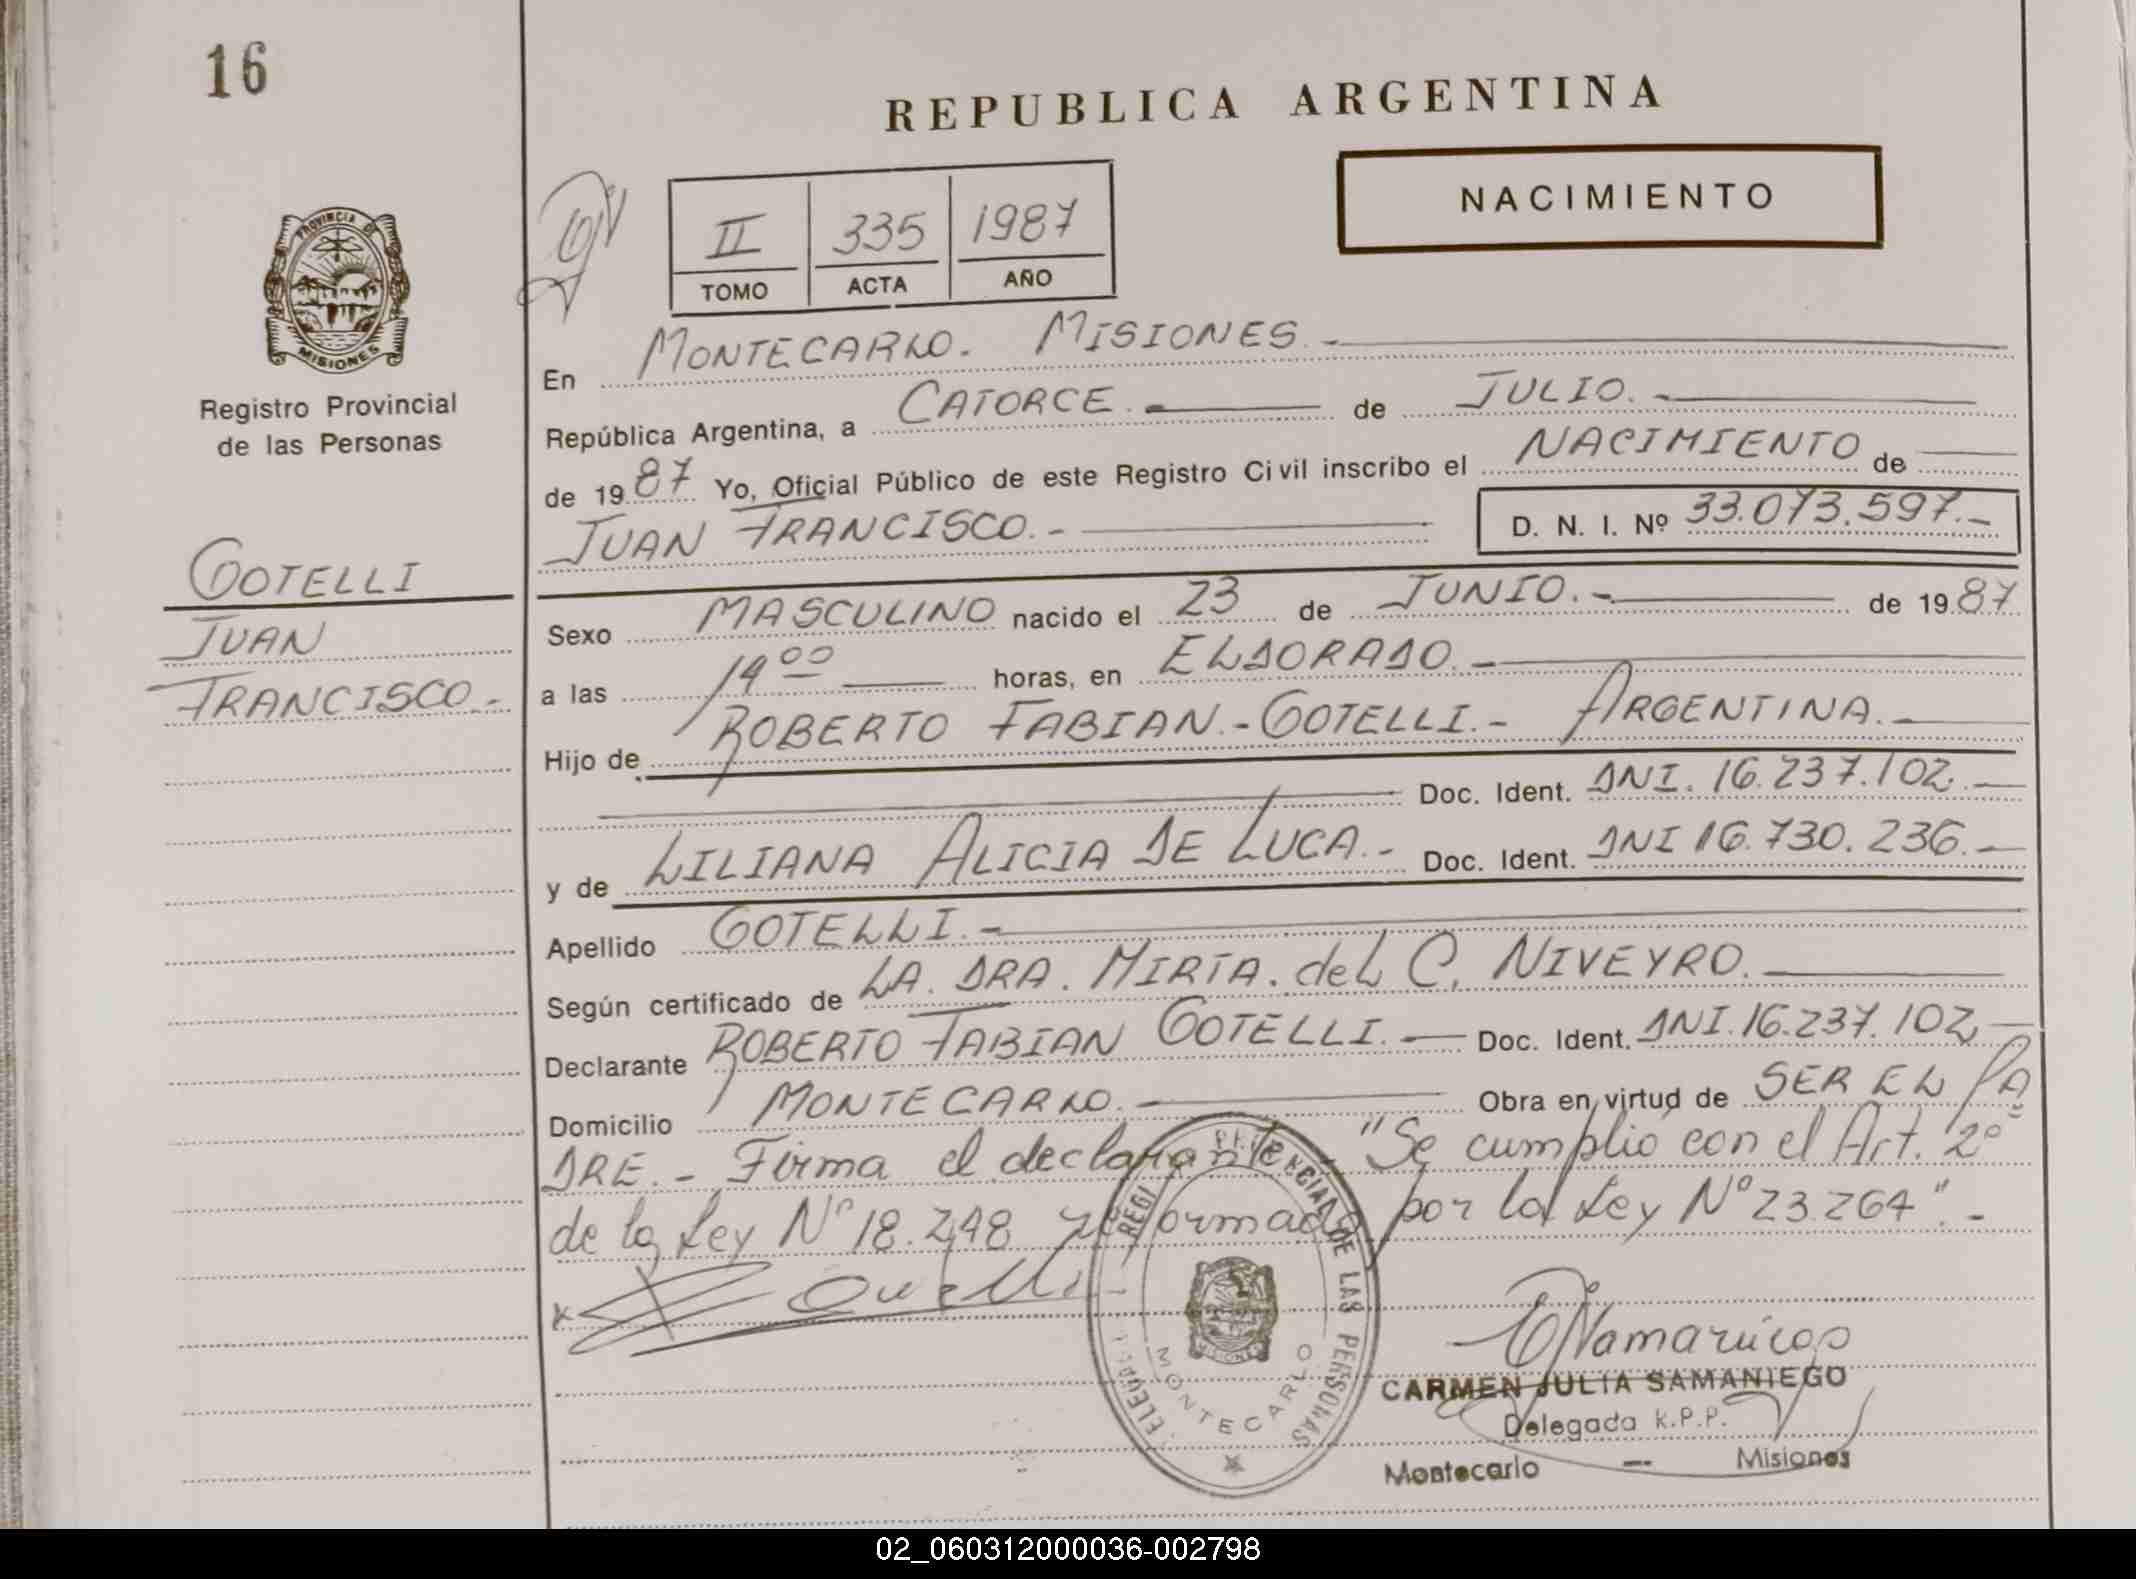 16
REPUBLICA ARGENTINA
NACIMIENTO
II 335 1987
TOMO ACTA AÑO
PROVINCIA DE
MISIONES
Registro Provincial
de las Personas
GOTELLI
JUAN
FRANCISCO.-
En MONTECARLO. MISIONES.-
República Argentina, a CATORCE.- de JULIO.-
de 1987 Yo, Oficial Público de este Registro Civil inscribo el NACIMIENTO de
JUAN FRANCISCO.- D. N. I. Nº 33.073.597.-
Sexo MASCULINO nacido el 23 de JUNIO.- de 1987
a las 14 00 horas, en ELDORADO.-
Hijo de ROBERTO FABIAN.-GOTELLI.- ARGENTINA.-
Doc. Ident. DNI. 16.237.102.-
y de LILIANA ALICIA DE LUCA.- Doc. Ident. DNI 16.730.236.-
Apellido GOTELLI.-
Según certificado de LA. DRA. MIRTA. del C. NIVEYRO.
Declarante ROBERTO FABIAN GOTELLI.- Doc. Ident. DNI. 16.237.102
Domicilio MONTECARLO. Obra en virtud de SER EL PA
DRE.- Firma el declarante.- "Se cumplió con el Art. 2º
de la Ley Nº 18.248 reformado por la Ley Nº 23.264".-
DE LAS PERSONAS
MONTECARLO
MISIONES
CARMEN JULIA SAMANIEGO
Delegada R.P.P.
Montecarlo - Misiones
02_060312000036-002798